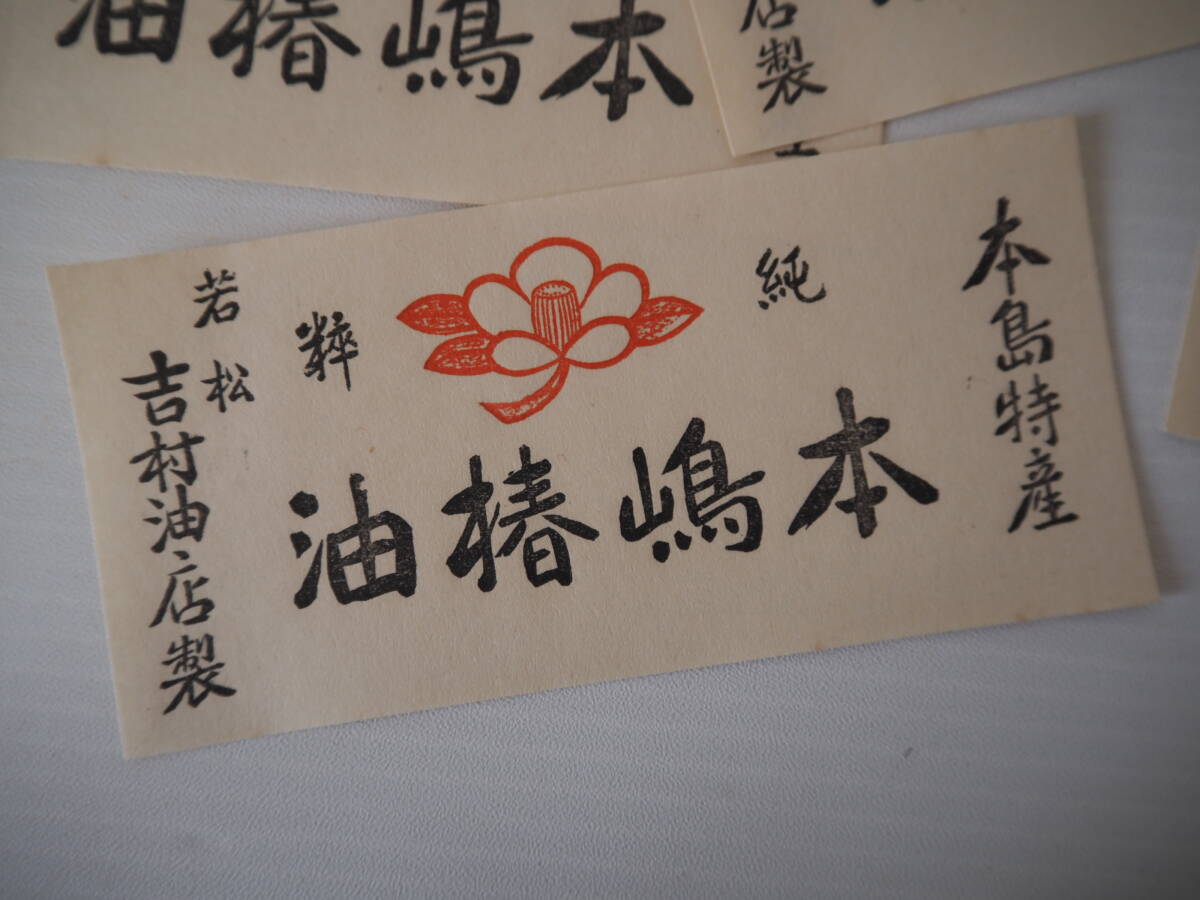 本嶋椿油
店製
本島特産
純粹
本嶋椿油
若松
吉村油店製